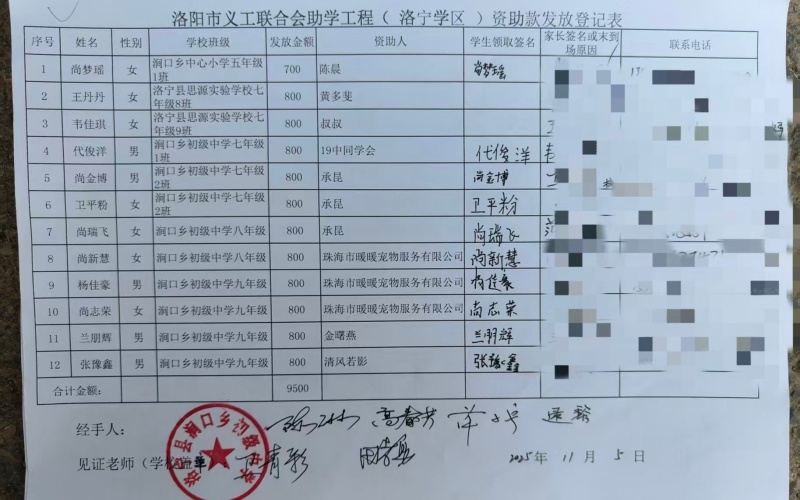 洛阳市义工联合会助学工程（ 洛宁学区 ）资助款发放登记表
序号 姓名 性别 学校班级 发放金额 资助人 学生领取签名 家长签名或未到场原因 联系电话
1 尚梦瑶 女 涧口乡中心小学五年级1班 700 陈晨 尚梦瑶
2 王丹丹 女 洛宁县思源实验学校七年级8班 800 黄多斐
3 韦佳琪 女 洛宁县思源实验学校七年级9班 800 叔叔
4 代俊洋 男 涧口乡初级中学七年级1班 800 19中同学会 代俊洋
5 尚金博 男 涧口乡初级中学七年级2班 800 承昆 尚金博
6 卫平粉 女 涧口乡初级中学七年级2班 800 承昆 卫平粉
7 尚瑞飞 女 涧口乡初级中学八年级 800 承昆 尚瑞飞
8 尚新慧 女 涧口乡初级中学八年级 800 珠海市暖暖宠物服务有限公司 尚新慧
9 杨佳豪 男 涧口乡初级中学九年级 800 珠海市暖暖宠物服务有限公司 杨佳豪
10 尚志荣 女 涧口乡初级中学九年级 800 珠海市暖暖宠物服务有限公司 尚志荣
11 兰朋辉 男 涧口乡初级中学九年级 800 金曙燕 兰朋辉
12 张豫鑫 男 涧口乡初级中学九年级 800 清风若影 张豫鑫
合计金额： 9500
经手人：
见证老师（学校盖章 2025年 11月 5日
洛宁县涧口乡初级中学